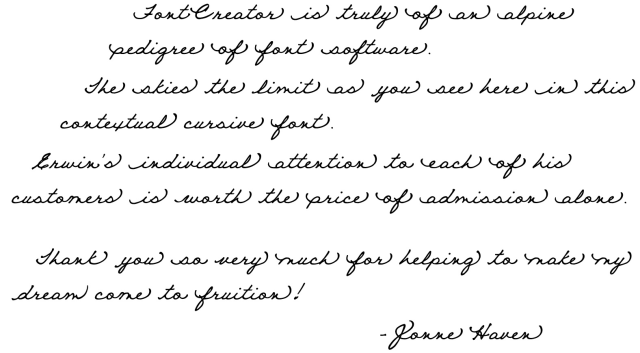 FontCreator is truly of an alpine
pedigree of font software.
The skies the limit as you see here in this
contextual cursive font.
Erwin's individual attention to each of his
customers is worth the price of admission alone.
Thank you so very much for helping to make my
dream come to fruition!
- Yonne Haven